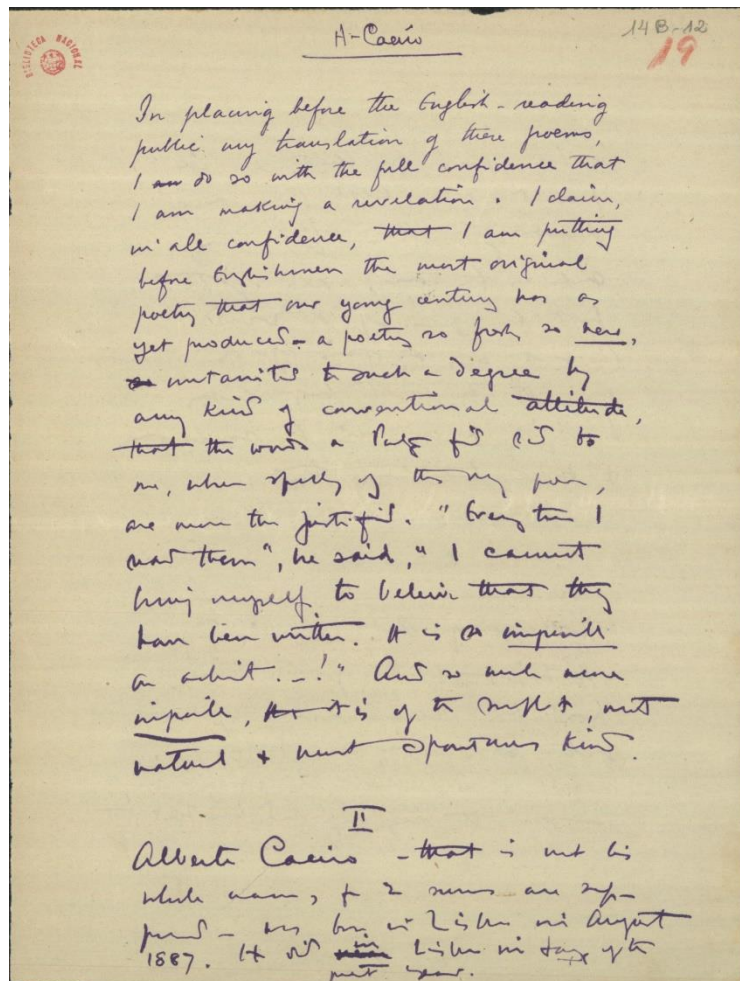 A. Caeiro
14B-12
19
BIBLIOTECA NACIONAL
In placing before the English-reading
public my translation of these poems,
I am do so with the full confidence that
I am making a revelation. I claim,
in all confidence, that I am putting
before Englishmen the most original
poetry that our young century has as
yet produced - a poetry so fresh so new,
untainted to such a degree by
any kind of conventional attitude,
that the words a friend said to
me, when speaking of these very poems,
are more than justified. "Every time I
read them", he said, "I cannot
bring myself to believe that they
have been written. It is so impossible
an achievement...!" And so much more
impossible, that it is of the simplest, most
natural & most spontaneous kind.
II
Alberto Caeiro - that is not his
whole name, for 2 names are sup-
pressed - was born in Lisbon in August
1887. He died in Lisbon in of the
past year.